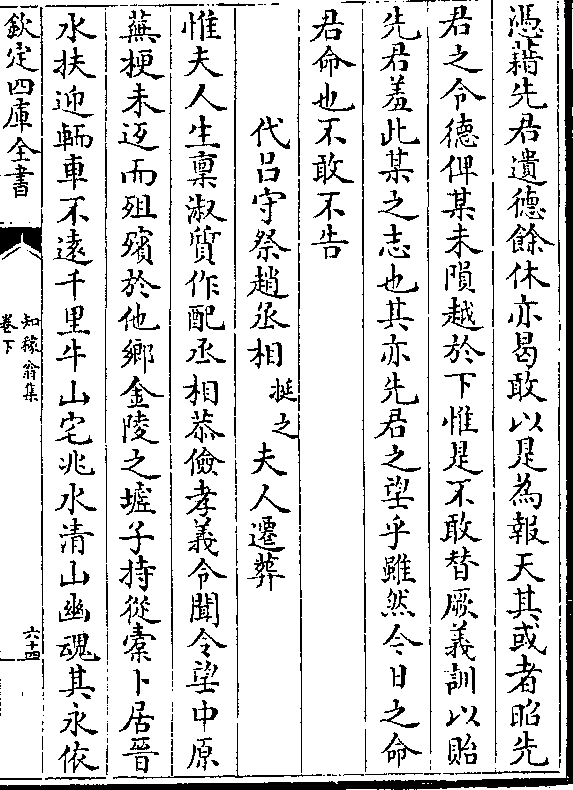 憑藉先君遺德餘休亦曷敢以是為報天其或者昭先
君之令德俾某未隕越於下惟是不敢替厥義訓以貽
先君羞此某之志也其亦先君之望乎雖然今日之命
君命也不敢不告
代吕守祭趙丞相挺之夫人遷葬
惟夫人生稟淑質作配丞相恭儉孝義令聞令望中原
蕪梗未迓而殂殯於他鄉金陵之墟子持從槖卜居晉
水扶迎輀車不遠千里牛山宅兆水清山幽魂其永依
欽定四庫全書
知稼翁集
卷下
六十四